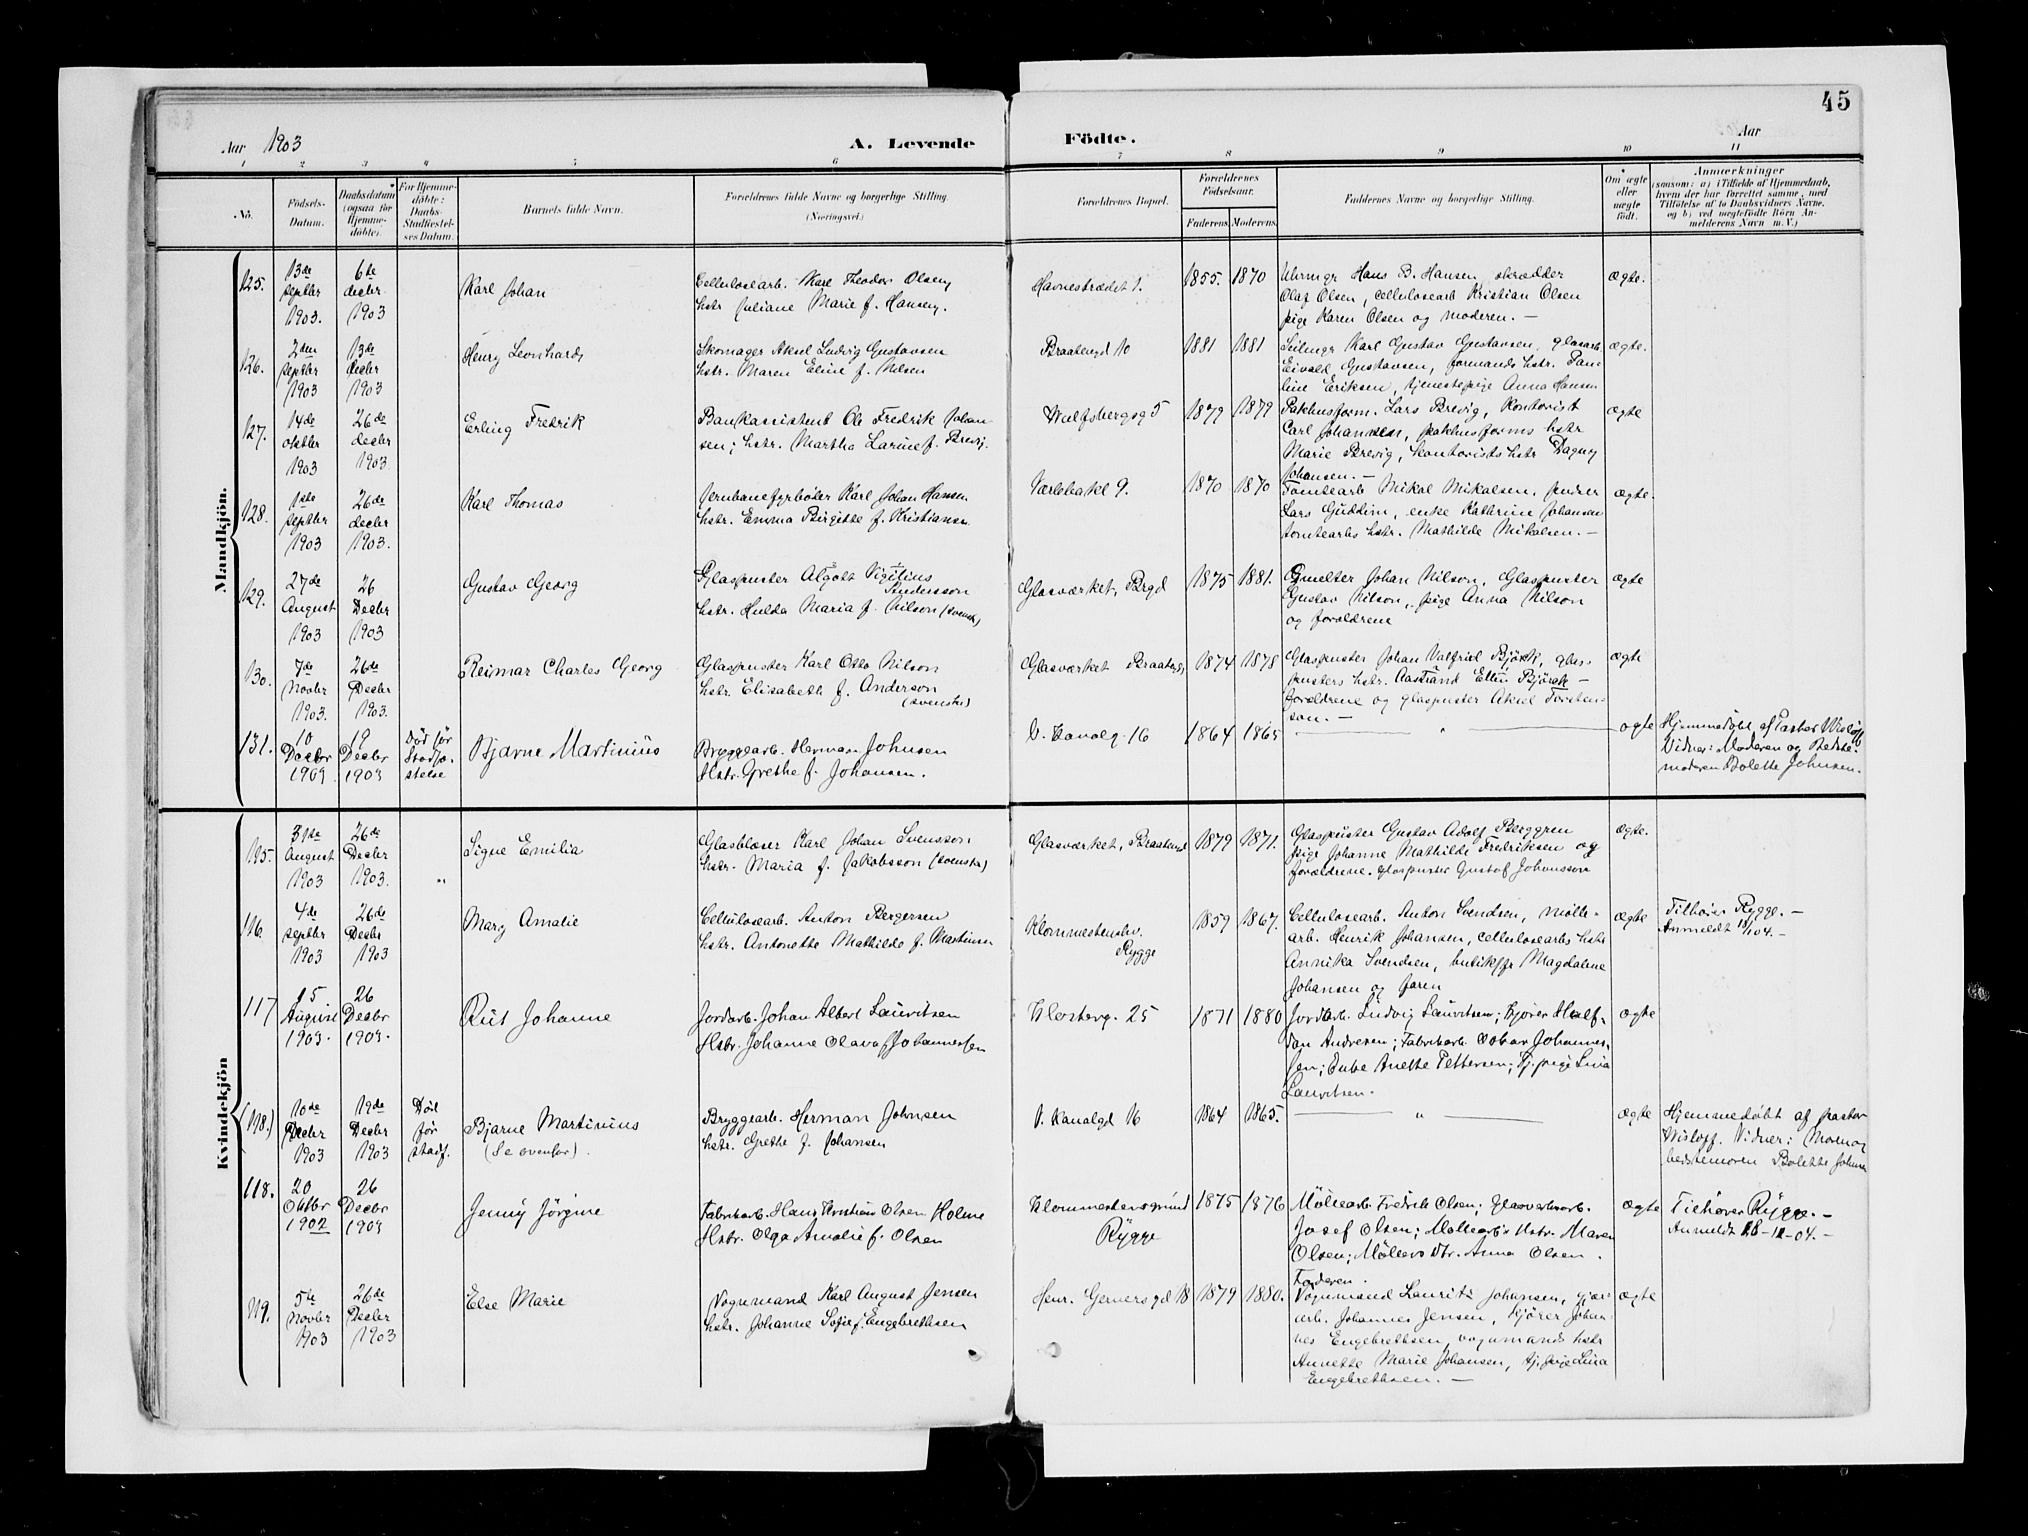 45
Aar 1903
A. Levende Födte.
Aar
1 2 3 4 5 6 7 8 9 10 11
No.
Födsels-Datum.
Daabsdatum (ogsaa for Hjemme-döbte).
For Hjemme-döbte: Daabs-Stadfæstel-ses Datum.
Barnets fulde Navn.
Forældrenes fulde Navne og borgerlige Stilling. (Næringsvei.)
Forældrenes Bopæl.
Forældrenes Födselsaar.
Faderens. Moderens.
Faddernes Navne og borgerlige Stilling.
Om ægte eller uægte födt.
Anmærkninger
(saasom: a) i Tilfælde af Hjemmedaab, hvem der har forrettet samme, med Tilföielse af to Daabsvidners Navne, og b) ved uægtefödte Börn An-melderens Navn m. V.)
Mandkjön.
125. 13de septbr 1903. 6te decbr 1903 Karl Johan
Cellulosearb. Karl Theodor Olsen,
hstr Juliane Marie f. Hansen.
Havnestrædet 1. 1855. 1870
Uhrmgr Hans B. Hansen, skrædder
Olaf Olsen, cellulosearb Kristian Olsen
pige Karen Olsen og moderen. —
ægte.
126. 2den septbr 1903 13de decbr 1903 Henry Leonhard
Skomager Aksel Ludvig Gustavsen
hstr. Maren Eline f. Nilsen
Braatengd 10 1881 1881
Seilmgr Karl Gustav Gustavsen, glasarb.
Eivald Gustavsen, formands hstr. Pau-
line Eriksen, tjenestepige Anna Hansen
ægte.
127. 14de oktbr 1903 26de decbr 1903. Erling Fredrik
Bankassistent Ole Fredrik Johan-
sen; hstr. Martha Larine f. Brevig.
Wulfsbergsg 5 1879 1879
Pakhusform. Lars Brevig, Kontorist
Carl Johansen, pakhusforms hstr
Marie Brevig, kontorists hstr Dagny
Johansen. —
ægte
128. 1ste septbr 1903 26de decbr 1903. Karl Thomas
Jernbanefyrbøter Karl Johan Hansen
hstr. Emma Birgitte f. Kristiansen
Værlebakl 9. 1870 1870
Tomtearb Mikal Mikalsen, pudser
Lars Guddim, enke Kathrine Johansen
tomtearbs hstr. Mathilde Mikalsen. —
ægte.
129. 27de August 1903 26 Decbr 1903 Gustav Georg
Glaspuster Algott Vigilius
Andersson
hstr. Hulda Maria f. Nilson (svensk)
Glasværket, Brgd 1875 1881.
Smelter Johan Nilson, Glaspuster
Gustav Nilson, pige Anna Nilson
og forældrene
ægte
130. 7de Novbr 1903. 26de Decbr 1903. Reimar Charles Georg
Glaspuster Karl Otto Nilson
hstr. Elisabeth f. Anderson
(svenske)
Glasværket Braateng. 1874 1878
Glaspuster Johan Valfrid Bjørk, glas-
pusters hstr. Aastrand Ellin Bjørck —
forældrene og glaspuster Aksel Torsten-
son. —
ægte
131. 10 Decbr 1903. 19 Decbr 1903 Død før Stadfæ-stelse Bjarne Martinius
Bryggearb. Herman Johnsen
Hstr. Grethe f. Johansen.
V. Kanalg. 16 1864 1865
— " —
ægte
Hjemmedøbt af Pastor Wisløff
Vidner: Moderen og Bedste-
moderen Bolette Johnsen.
Kvindekjön
115. 31te August 1903 26de Decbr 1903. " Signe Emilia
Glasblæser Karl Johan Svensson
hstr. Maria f. Jakobsson (svenske)
Glasværket, Braatengd 1879 1871.
Glaspuster Gustav Adolf Berggren
pige Johanne Mathilde Fredriksen og
forældrene. Glaspuster Gustaf Johansson
ægte.
116. 4de septbr 1903 26de Decbr 1903 Mary Amalie
Cellulosearb. Anton Bergersen
hstr. Antonette Mathilde f. Martinsen
Klommestenshv.
Rygge
1859 1867.
Cellulosearb. Anton Svendsen, mølle-
arb. Henrik Johansen, cellulosearbs hstr
Annika Svendsen, butikkfr Magdalene
Johansen og faren
ægte
Tilhører Rygge. —
Anmeldt
117 15 August 1903. 26 Decbr 1903. Rut Johanne
Jordarb. Johan Albert Lauritsen
Hstr. Johanne Olava f. Johannessen
Klosterg. 25 1871 1880
Jordarb. Ludvig Lauritsen; Kjører Half-
dan Andresen; Fabrikarb. Oskar Johannes-
sen; Enke Anette Pettersen; Tj.pige Lina
Lauritsen.
ægte
(118.) 10de Decbr 1903 19de Decbr 1903 Død før stadf. Bjarne Martinius
(Se ovenfor).
Bryggearb. Herman Johnsen
hstr. Grethe f. Johansen
V. Kanalgd 16 1864 1865.
— " —
ægte
Hjemmedøbt af pastor
Wisløff. Vidner: Mor og
bedstemoren Bolette Johnsen
118. 20 Oktbr 1902 26 Decbr 1903 Jenny Jørgine
Fabrikarb. Hans Kristian Olsen Holme
Hstr. Olga Amalie f. Olsen
Klommestensgrund
Rygge
1875 1876
Møllearb Fredrik Olsen; Glasverksarb.
Josef Olsen; Møllearb's Hstr. Maren
Olsen; Møllers Dtr. Anna Olsen.
Faderen.
ægte
Tilhører Rygge. —
Anmeldt 18-11-04. —
119. 5te Novbr 1903 26de Decbr 1903 Else Marie
Vognmand Karl August Jensen
hstr. Johanne Sofie f. Engebrethsen
Henr. Gernersgd 18 1879 1880.
Vognmand Lauritz Johansen, gjær-
arb. Johannes Jensen, Kjører Johan-
nes Engebrethsen, vognmands hstr
Annette Marie Johansen, tj. pige Lina
Engebrethsen. —
ægte